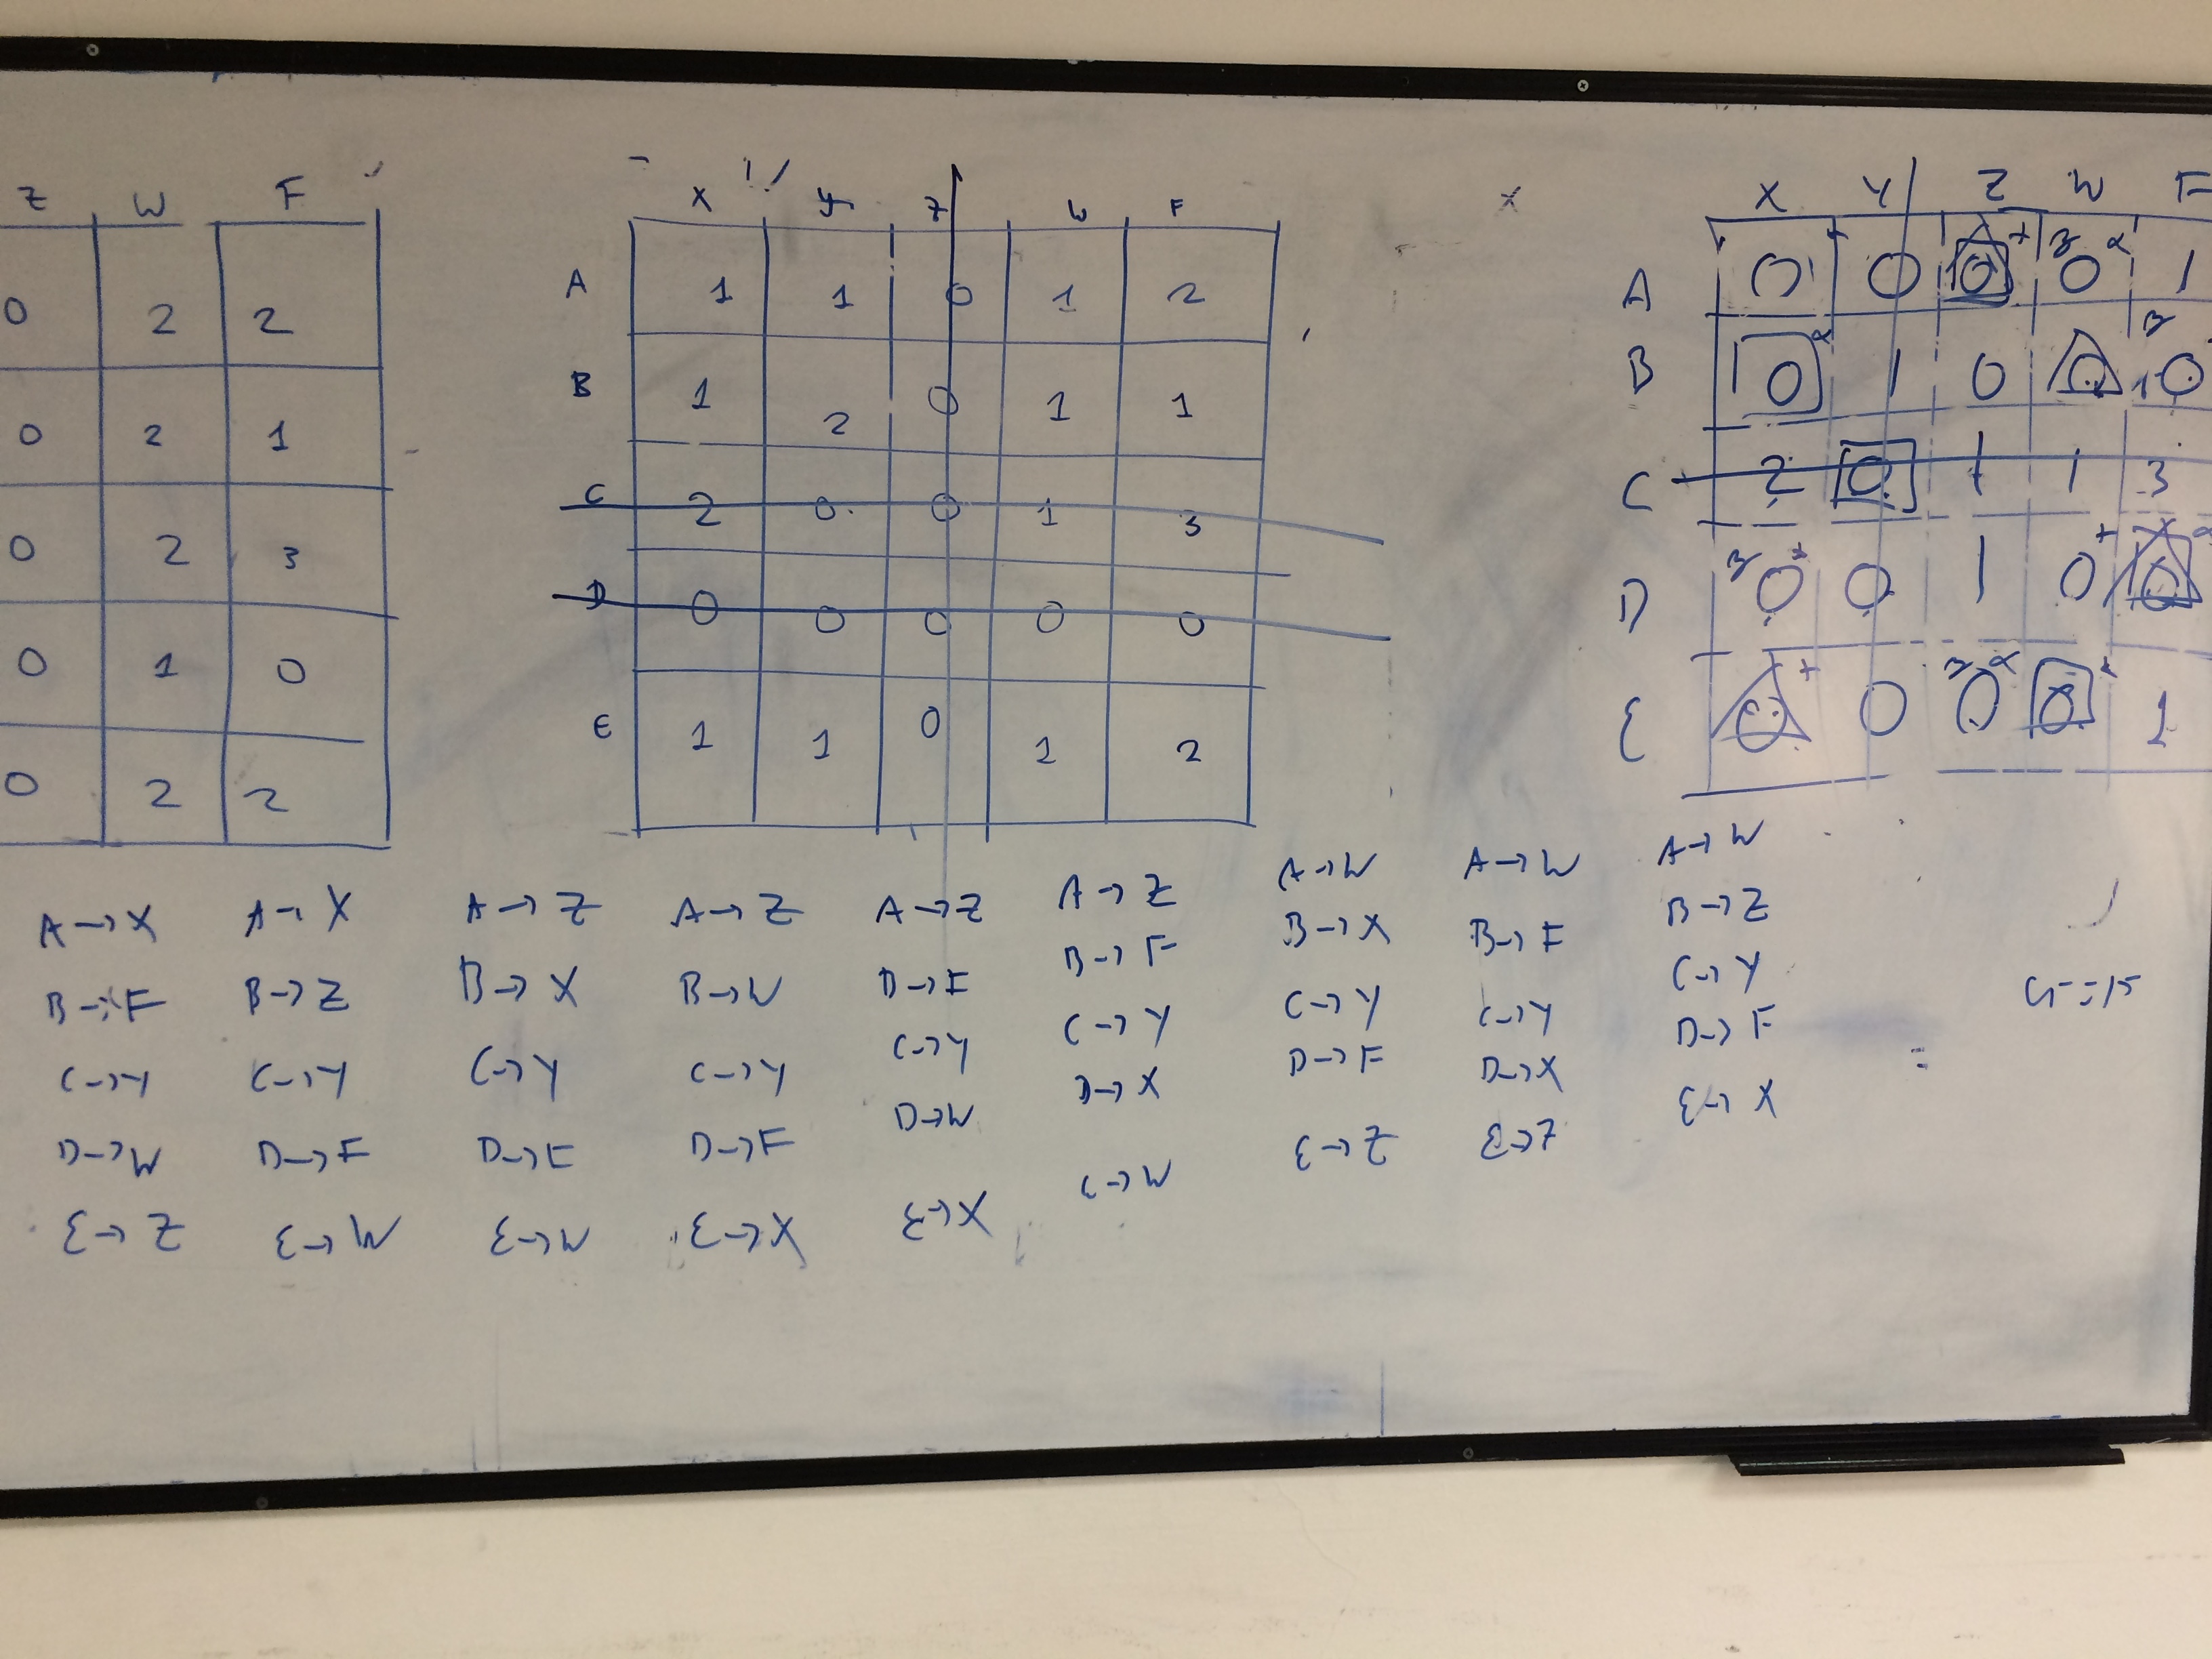 Z W F
0 2 2
0 2 1
0 2 3
0 1 0
0 2 2
X y Z W F
A 1 1 0 1 2
B 1 2 0 1 1
C 2 0 0 1 3
D 0 0 0 0 0
E 1 1 0 1 2
X Y Z W F
A 0 0 0 0 1
B 0 1 0 0 0
C 2 0 1 1 3
D 0 0 1 0 0
E 0 0 0 0 1
A→X
B→F
C→Y
D→W
E→Z
A→X
B→Z
C→Y
D→F
E→W
A→Z
B→X
C→Y
D→F
E→W
A→Z
B→W
C→Y
D→F
E→X
A→Z
D→F
C→Y
D→W
E→X
A→Z
B→F
C→Y
D→X
E→W
A→W
B→X
C→Y
D→F
E→Z
A→W
B→F
C→Y
D→X
E→Z
A→W
B→Z
C→Y
D→F
E→X